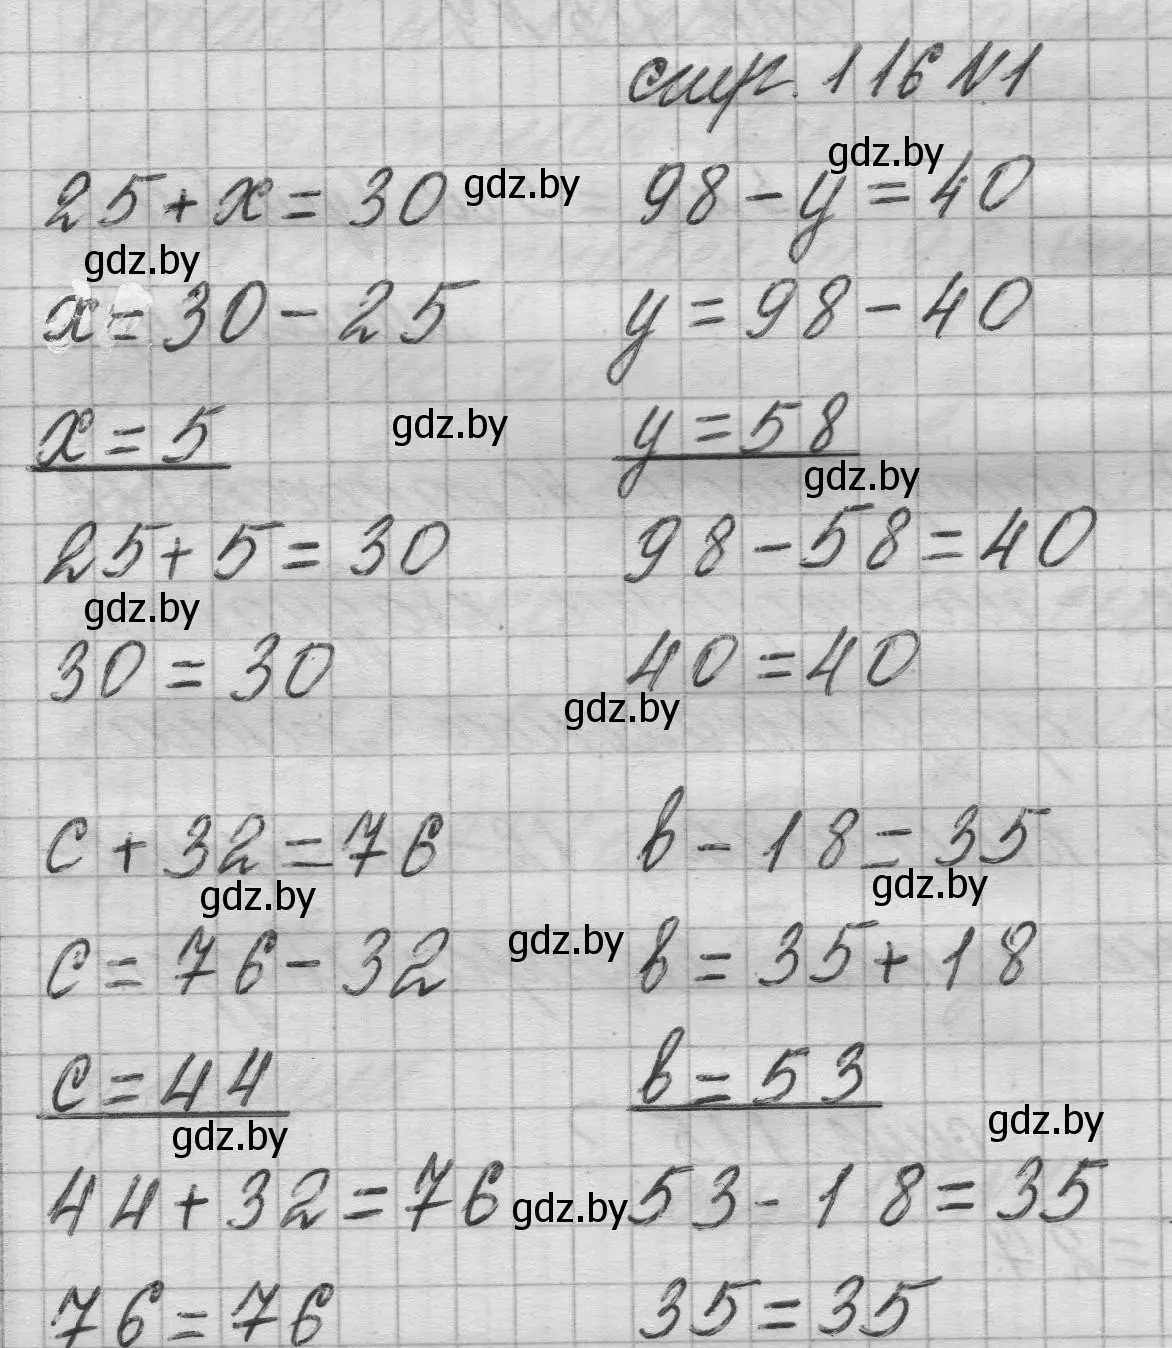 стр. 116 N1
25 + x = 30
gdz.by
98 - y = 40
gdz.by
gdz.by
x = 30 - 25
y = 98 - 40
x = 5
gdz.by
y = 58
gdz.by
25 + 5 = 30
98 - 58 = 40
gdz.by
30 = 30
40 = 40
gdz.by
c + 32 = 76
b - 18 = 35
gdz.by
gdz.by
c = 76 - 32
gdz.by
b = 35 + 18
c = 44
b = 53
gdz.by
gdz.by
44 + 32 = 76
gdz.by
53 - 18 = 35
76 = 76
35 = 35